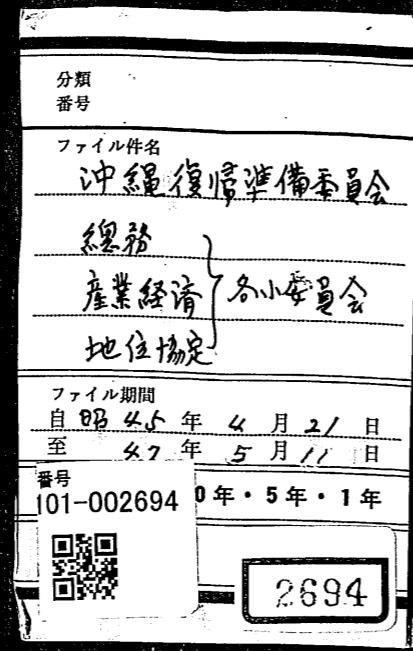 分類
番号
ファイル件名
沖縄復帰準備委員会
総務
産業経済
各小委員会
地位協定
ファイル期間
自 昭 45 年 4 月 21 日
至 47 年 5 月 11 日
番号
101-002694
0年・5年・1年
2694